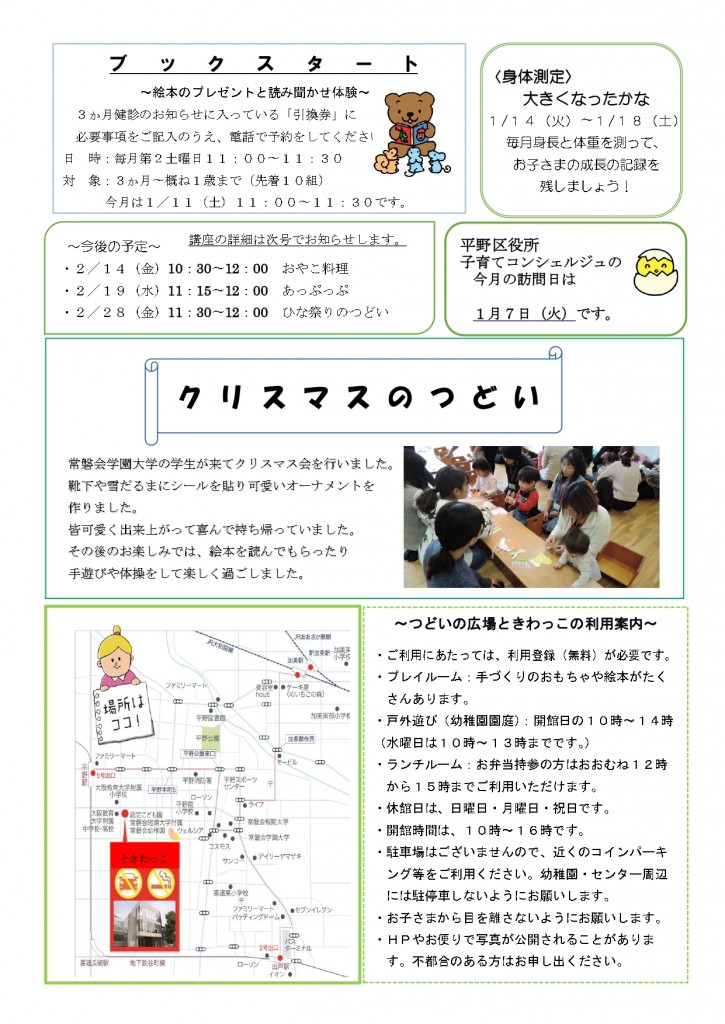 ブックスタート
～絵本のプレゼントと読み聞かせ体験～
３か月健診のお知らせに入っている「引換券」に
必要事項をご記入のうえ、電話で予約をしてくださ
日　時：毎月第２土曜日１１：００～１１：３０
対　象：３か月～概ね１歳まで（先着１０組）
今月は１／１１（土）１１：００～１１：３０です。
〈身体測定〉
大きくなったかな
１/１４（火）～１/１８（土）
毎月身長と体重を測って、
お子さまの成長の記録を
残しましょう！
～今後の予定～　講座の詳細は次号でお知らせします。
・２／１４（金）10：30～12：00　おやこ料理
・２／１９（水）11：15～12：00　あっぷっぷ
・２／２８（金）11：30～12：00　ひな祭りのつどい
平野区役所
子育てコンシェルジュの
今月の訪問日は
１月７日（火）です。
クリスマスのつどい
常磐会学園大学の学生が来てクリスマス会を行いました。
靴下や雪だるまにシールを貼り可愛いオーナメントを
作りました。
皆可愛く出来上がって喜んで持ち帰っていました。
その後のお楽しみでは、絵本を読んでもらったり
手遊びや体操をして楽しく過ごしました。
場所は
ココ！
JRおおさか東線
JR大和路線
新加美駅
加美駅
加美東
小学校
ファミリーマート
美容室
hus
ケーキ屋
（めいちごの森）
平野図書館
加美南部小学校
平野公園
平野公園東口
加美鞍作西
ファミリーマート
モービル
平野駅
5号出口
平野消防署
平野スポーツ
センター
大阪教育大学附属
小学校
平野本町5
ローソン
ライフ
大阪教育
大学附属
中学校・高校
認定こども園
常磐会短期大学付属
常磐会幼稚園
平野南
小学校
ウェルシア
常磐会短期大学
常磐会学園大学
コスモス
ときわっこ
サンコー
アイリーヤマザキ
喜連東小学校
ファミリーマート
バッティングドーム
セブンイレブン
2号出口
バス
ターミナル
喜連瓜破駅
地下鉄谷町線
ローソン
出戸駅
イオン
～つどいの広場ときわっこの利用案内～
・ご利用にあたっては、利用登録（無料）が必要です。
・プレイルーム：手づくりのおもちゃや絵本がたく
さんあります。
・戸外遊び（幼稚園園庭）：開館日の１０時～１４時
（水曜日は１０時～１３時までです。）
・ランチルーム：お弁当持参の方はおおむね１２時
から１５時までご利用いただけます。
・休館日は、日曜日・月曜日・祝日です。
・開館時間は、１０時～１６時です。
・駐車場はございませんので、近くのコインパーキ
ング等をご利用ください。幼稚園・センター周辺
には駐停車しないようにお願いします。
・お子さまから目を離さないようにお願いします。
・ＨＰやお便りで写真が公開されることがありま
す。不都合のある方はお申し出ください。